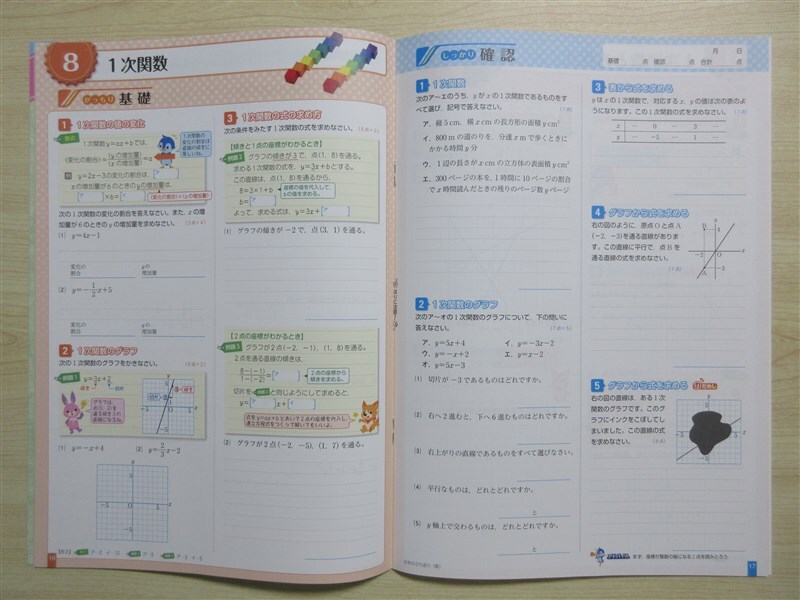 8
1次関数
がっちり 基礎
1 1次関数の値の変化
1次関数y=ax+bでは,
(変化の割合)=(yの増加量)/(xの増加量)=a
y=2x-3の変化の割合は,
xの増加量が6のときのyの増加量は,
次の1次関数の変化の割合を答えなさい。また, xの増
加量が6のときのyの増加量を求めなさい。
(1) y=4x-1
変化の割合 yの増加量
(2) y=-1/2x+5
変化の割合 yの増加量
2 1次関数のグラフ
次の1次関数のグラフをかきなさい。
(1) y=-x+4 (2) y=2/3x-2
16
3 1次関数の式の求め方
次の条件をみたす1次関数の式を求めなさい。
【傾きと1点の座標がわかるとき】
グラフの傾きが3で, 点(1, 8)を通る。
求める1次関数の式を, y=3x+bとする。
この直線は, 点(1, 8)を通るから,
8=3×1+b
b=
よって, 求める式は, y=3x+
(1) グラフの傾きが-2で, 点(3, 1)を通る。
【2点の座標がわかるとき】
グラフが2点(-2, -1), (1, 8)を通る。
2点を通る直線の傾きは,
8-(-1)/1-(-2)=
2点の座標から傾きを求める。
と同じようにして求めると,
y= x+
(2) グラフが2点(-2, -5), (1, 7)を通る。
しっかり 確認
月 日
基礎 点 確認 点 合計 点
1 1次関数
次のア〜エのうち, yがxの1次関数であるものをす
べて選び, 記号で答えなさい。
ア. 縦5cm, 横xcmの長方形の面積ycm²
イ. 800mの道のりを, 分速xmで歩くときに
かかる時間y分
ウ. 1辺の長さがxcmの立方体の表面積ycm²
エ. 300ページの本を, 1時間に10ページの割合
でx時間読んだときの残りのページ数yページ
2 1次関数のグラフ
次のア〜オの1次関数のグラフについて, 下の問いに
答えなさい。
ア. y=5x+4 イ. y=-3x-2
ウ. y=-x+2 エ. y=x-2
オ. y=5x-3
(1) 切片が-3であるものはどれですか。
(2) 右へ2進むと, 下へ6進むものはどれですか。
(3) 右上がりの直線であるものをすべて選びなさい。
(4) 平行なものは, どれとどれですか。
と
(5) y軸上で交わるものは, どれとどれですか。
と
3 表から式を求める
yはxの1次関数で, 対応するx, yの値は次の表のよ
うになります。この1次関数の式を求めなさい。
x … 0 … 3 …
y … -1 … -3 …
4 グラフから式を求める
右の図のように, 原点Oと点A
(-2, -3)を通る直線がありま
す。この直線に平行で, 点Bを
通る直線の式を求めなさい。
5 グラフから式を求める
右の図の直線は, ある1次
関数のグラフです。このグ
ラフにインクをこぼしてし
まいました。この直線の式
を求めなさい。
まず, 座標が整数の組になる2点を読みとろう
17